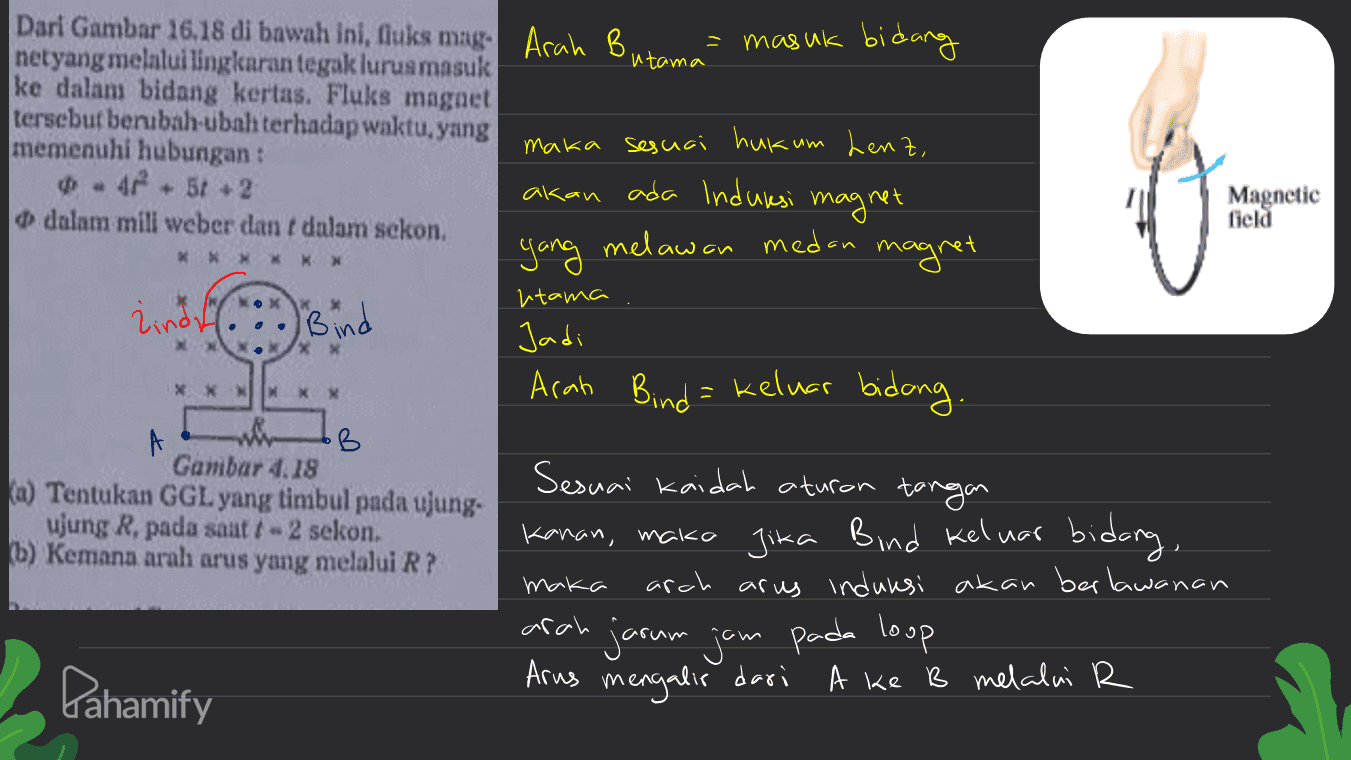 Dari Gambar 16.18 di bawah ini, fluks mag-
netyang melalui lingkaran tegak lurus masuk
ke dalam bidang kertas. Fluks magnet
tersebut berubah-ubah terhadap waktu, yang
memenuhi hubungan :
Φ = 4t² + 5t + 2
Φ dalam mili weber dan t dalam sekon.
iind
Bind
R
A
B
Gambar 4.18
(a) Tentukan GGL yang timbul pada ujung-
ujung R, pada saat t = 2 sekon.
(b) Kemana arah arus yang melalui R ?
Pahamify
Arah Butama = masuk bidang
maka sesuai hukum Lenz,
akan ada Induksi magnet
yang melawan medan magnet
utama.
Jadi
Arah Bind = keluar bidang.
Sesuai kaidah aturan tangan
kanan, maka jika Bind keluar bidang,
maka arah arus induksi akan berlawanan
arah jarum jam pada loop
Arus mengalir dari A ke B melalui R
I
Magnetic
field